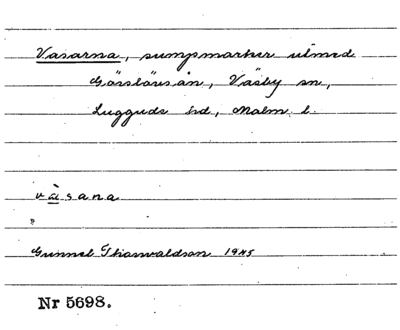 Vasarna, sumpmarker utmed
Görslövsån, Väsby sn,
Luggude hd, Malm. l.
vàsana
Gunnel Thorvaldson 1945
Nr 5698.